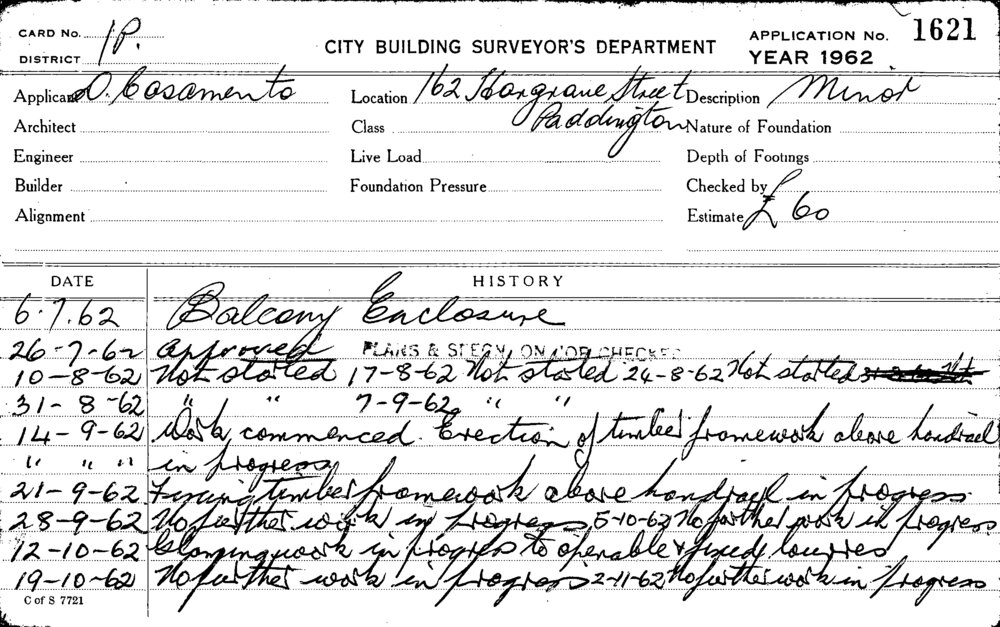 CARD No. 1P.
DISTRICT
CITY BUILDING SURVEYOR'S DEPARTMENT
APPLICATION No. 1621
YEAR 1962
Applicant O. Casamento Location 162 Hargrave Street Description Minor
Architect Class Paddington Nature of Foundation
Engineer Live Load Depth of Footings
Builder Foundation Pressure Checked by
Alignment Estimate £ 60
DATE HISTORY
6.7.62 Balcony Enclosure
26-7-62 Approved PLANS & SPECN. ON JOB CHECKED
10-8-62 Not started 17-8-62 Not started 24-8-62 Not started
31-8-62 " " 7-9-62 " "
14-9-62 Work commenced. Erection of timber framework above handrail
" " " in progress
21-9-62 Fixing timber framework above handrail in progress.
28-9-62 No further work in progress 5-10-62 No further work in progress
12-10-62 work in progress to openable & fixed louvres
19-10-62 No further work in progress 2-11-62 No further work in progress
C of S 7721